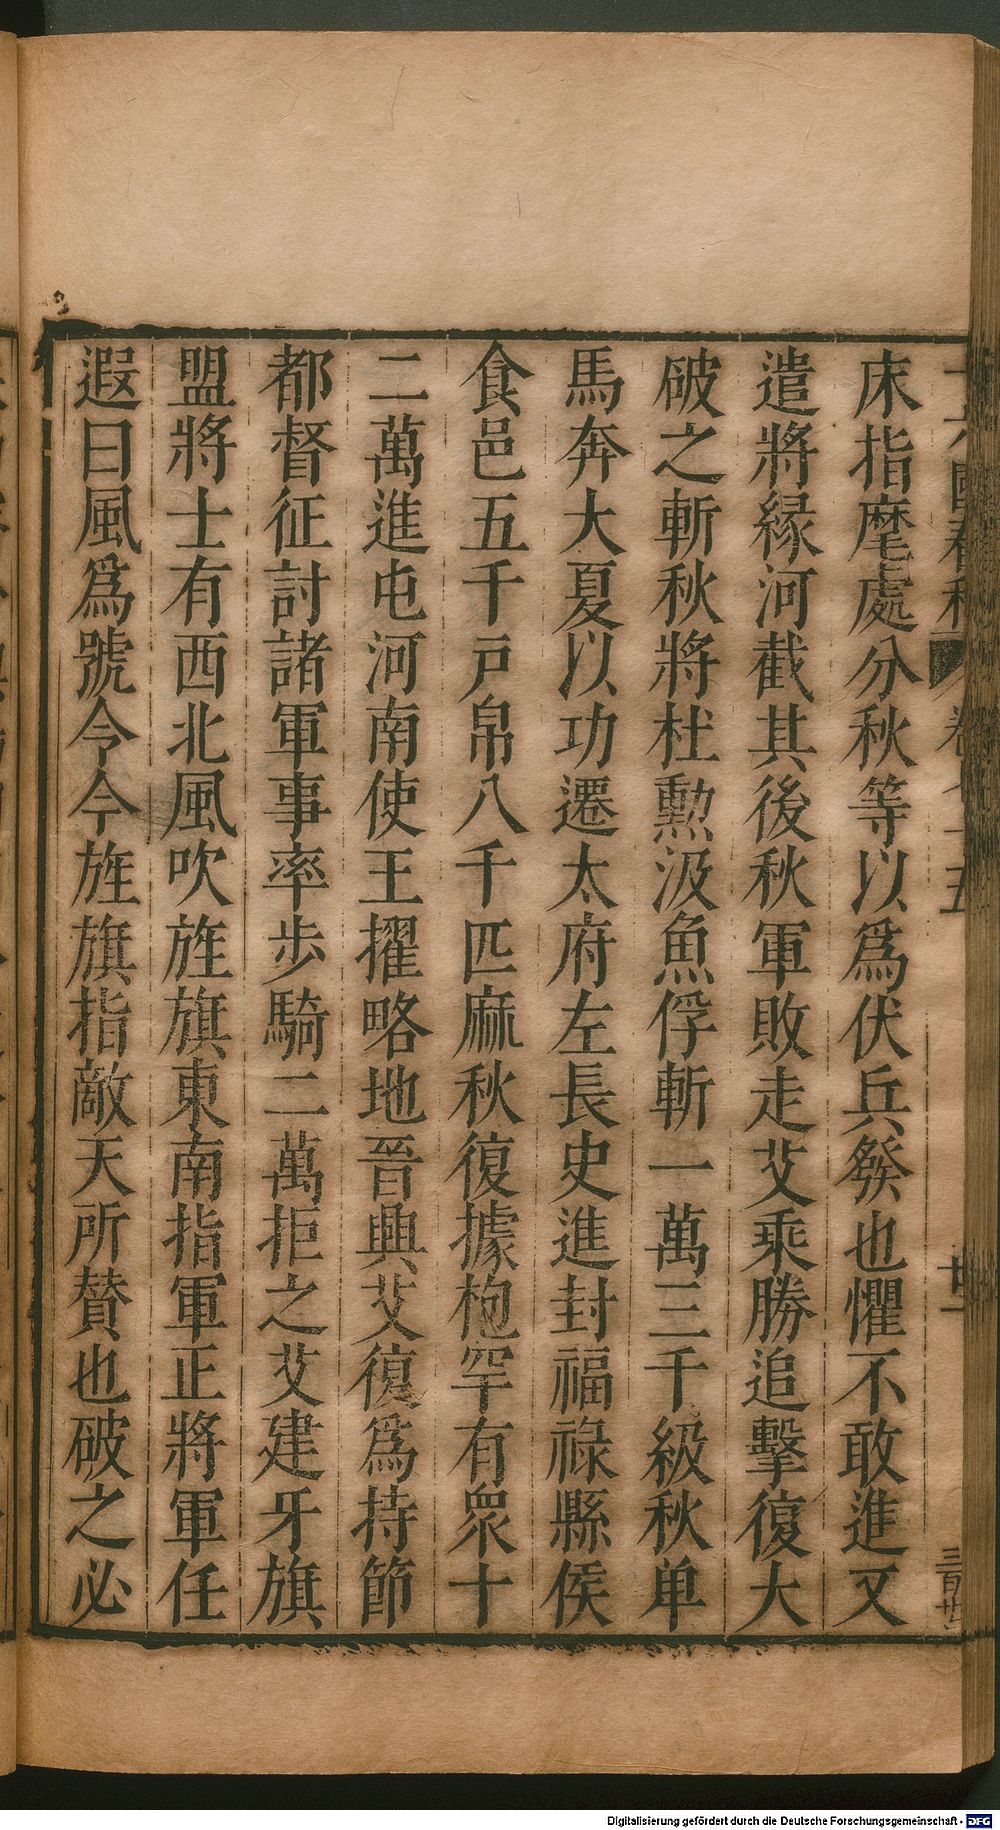 床指麾處分秋等以爲伏兵發也懼不敢進又
遣將緣河截其後秋軍敗走艾乘勝追擊復大
破之斬秋將杜勲汲魚俘斬一萬三千級秋单
馬奔大夏以功遷太府左長史進封福祿縣侯
食邑五千戸帛八千匹麻秋復據枹罕有眾十
二萬進屯河南使王擢略地晉興艾復爲持節
都督征討諸軍事率步騎二萬拒之艾建牙旗
盟將士有西北風吹旌旗東南指軍正將軍任
遐曰風爲號令今旌旗指敵天所賛也破之必
三百廿
Digitalisierung gefördert durch die Deutsche Forschungsgemeinschaft - DFG